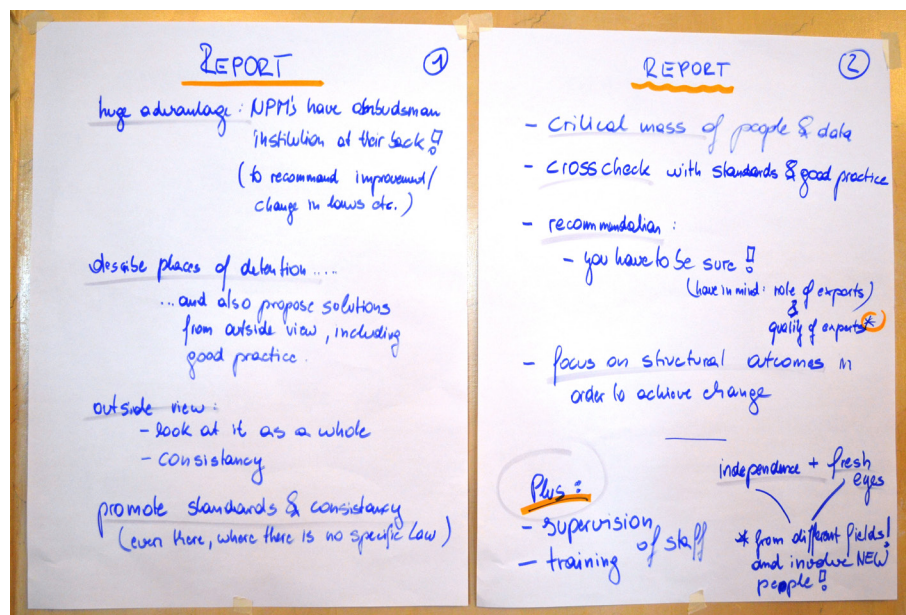 REPORT
1
huge advantage: NPM's have ombudsman
institution at their back!
(to recommand improvement/
change in laws etc.)
describe places of detention....
...and also propose solutions
from outside view, including
good practice.
outside view:
- look at it as a whole
- consistancy
promote standards & consistancy
(even there, where there is no specific Law)
REPORT
2
- critical mass of people & data
- crosscheck with standards & good practice
- recommandation:
- you have to be sure!
(have in mind: role of experts)
&
quality of experts*
- focus on structural outcomes in
order to achieve change
Plus:
- supervision
- training
of staff
independence + fresh
eyes
* from different fields!
and involve NEW
people!